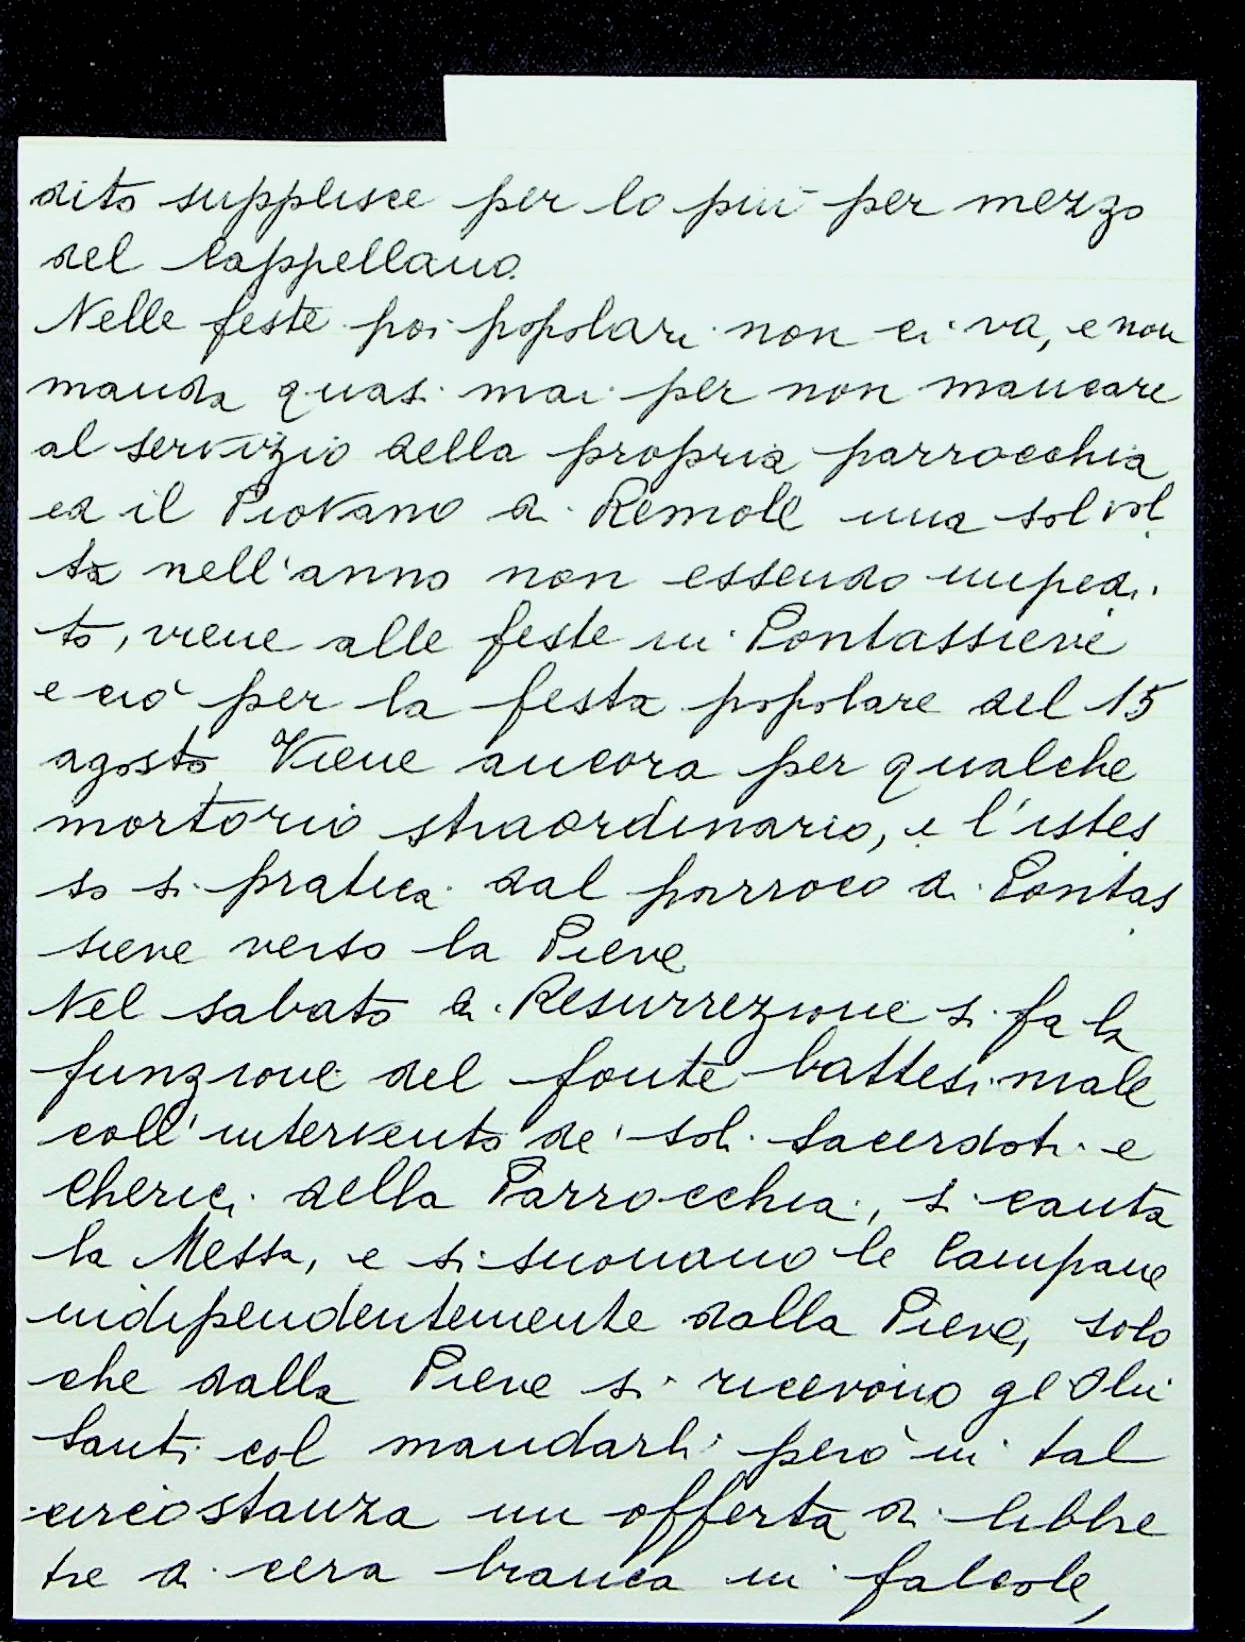 dito supplisce per lo più per mezzo
del Cappellano.
Nelle feste poi popolari non ci va, e non
manda quasi mai per non mancare
al servizio della propria parrocchia
ed il Piovano di Remole una sol vol
ta nell'anno non essendo impedi
to, viene alle feste in Pontassieve
e ciò per la festa popolare del 15
agosto. Viene ancora per qualche
mortorio straordinario, e l'istes
so si pratica dal parroco di Pontas
sieve verso la Pieve
Nel sabato di Resurrezione si fa la
funzione del fonte battesimale
coll'intervento de' soli Sacerdoti e
Cherici della Parrocchia, si canta
la Messa, e si suonano le Campane
indipendentemente dalla Pieve, solo
che dalla Pieve si ricevono gl'Olii
Santi col mandarli però in tal
circostanza un offerta di libbre
tre di cera bianca in falcole,